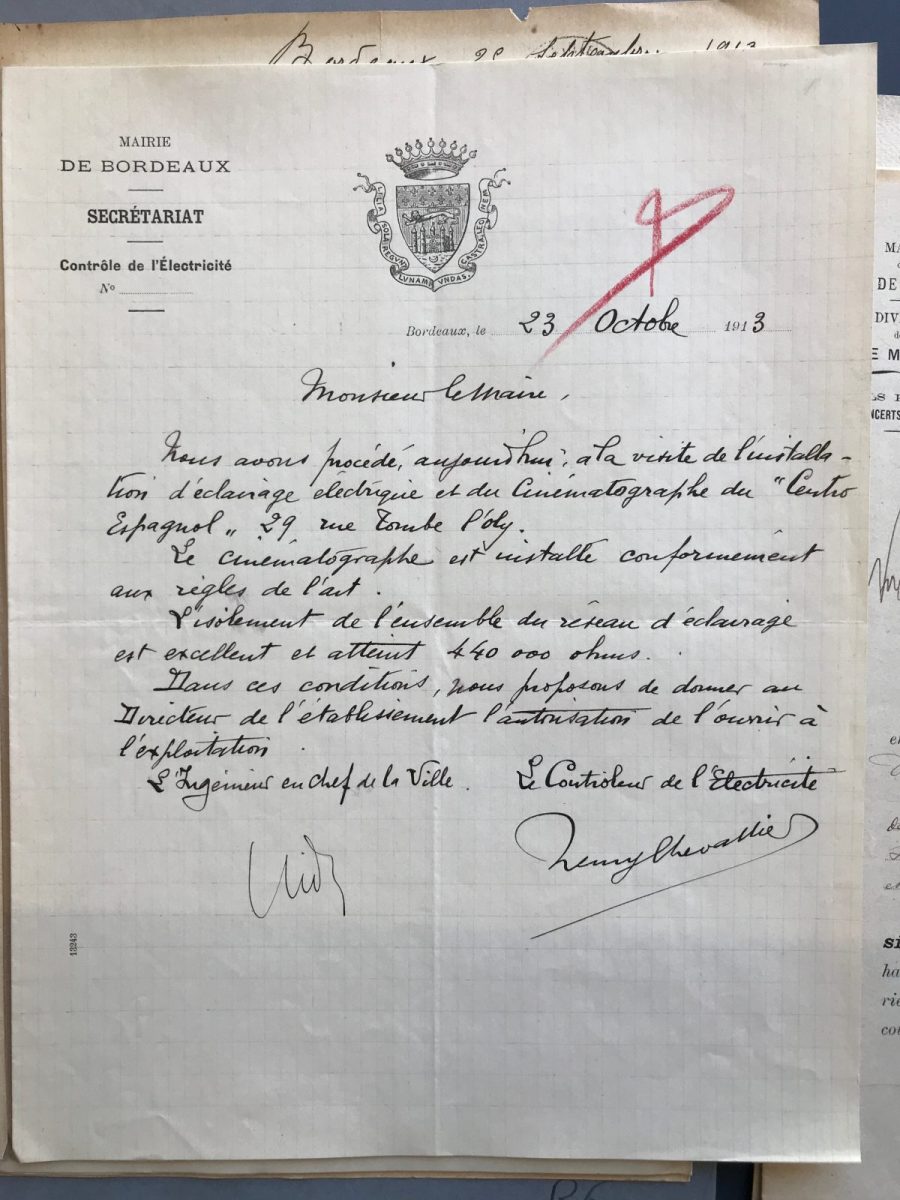 Bordeaux 1913
MAIRIE
DE BORDEAUX
SECRÉTARIAT
Contrôle de l'Électricité
No
LILIA SOLA REGUNT LUNAM UNDAS CASTRA LEONEM
Bordeaux, le 23 Octobre 1913
Monsieur le Maire,
Nous avons procédé, aujourd'hui, à la visite de l'installa-
tion d'éclairage électrique et du Cinématographe du "Centro
Espagnol" 29 rue Tombe l'Oly.
Le cinématographe est installé conformément
aux règles de l'art.
L'isolement de l'ensemble du réseau d'éclairage
est excellent et atteint 440 000 ohms.
Dans ces conditions, nous proposons de donner au
Directeur de l'établissement l'autorisation de l'ouvrir à
l'exploitation.
L'Ingénieur en chef de la Ville. Le Contrôleur de l'Electricité
Henry Chevallier
13243
MA
DE
DIV
E M
NCERTS
si
ha
rie
cou